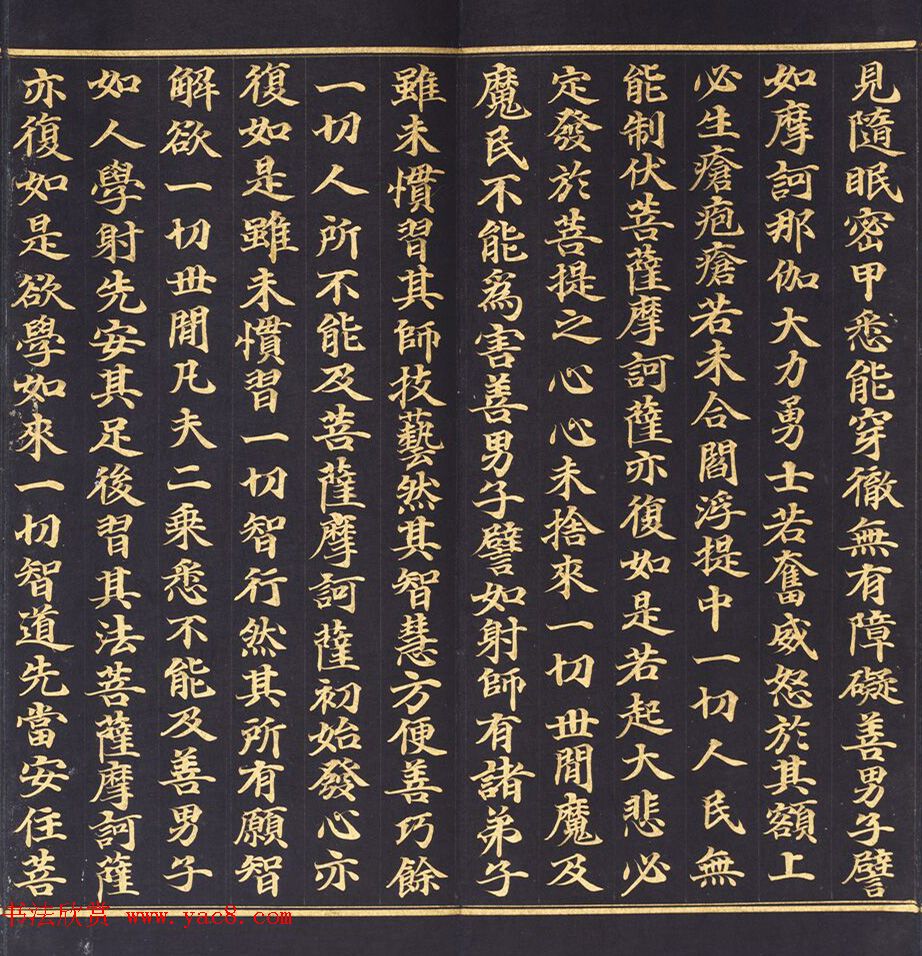 見隨眠密甲悉能穿徹無有障礙善男子譬
如摩訶那伽大力勇士若奮威怒於其額上
必生瘡疱瘡若未合閻浮提中一切人民無
能制伏菩薩摩訶薩亦復如是若起大悲必
定發於菩提之心心未捨來一切世間魔及
魔民不能為害善男子譬如射師有諸弟子
雖未慣習其師技藝然其智慧方便善巧餘
一切人所不能及菩薩摩訶薩初始發心亦
復如是雖未慣習一切智行然其所有願智
解欲一切世間凡夫二乘悉不能及善男子
如人學射先安其足後習其法菩薩摩訶薩
亦復如是欲學如來一切智道先當安住菩
书法欣赏 www.yac8.com